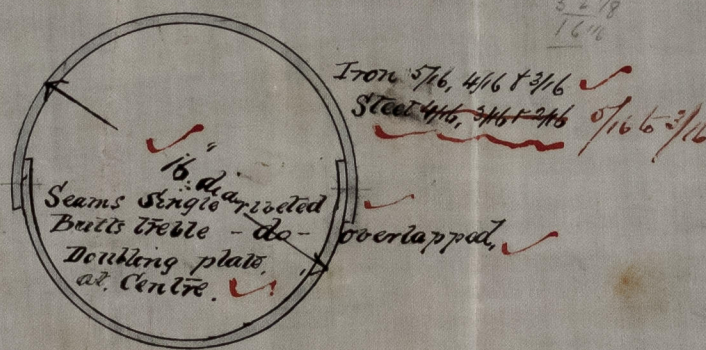 16"
Iron 5/16, 4/16 & 3/16
Steel 4/16, 3/16 & 2/16 5/16 to 3/16
16" dia
Seams Single riveted
Butts treble - do - overlapped,
Doubling plate,
at. Centre.